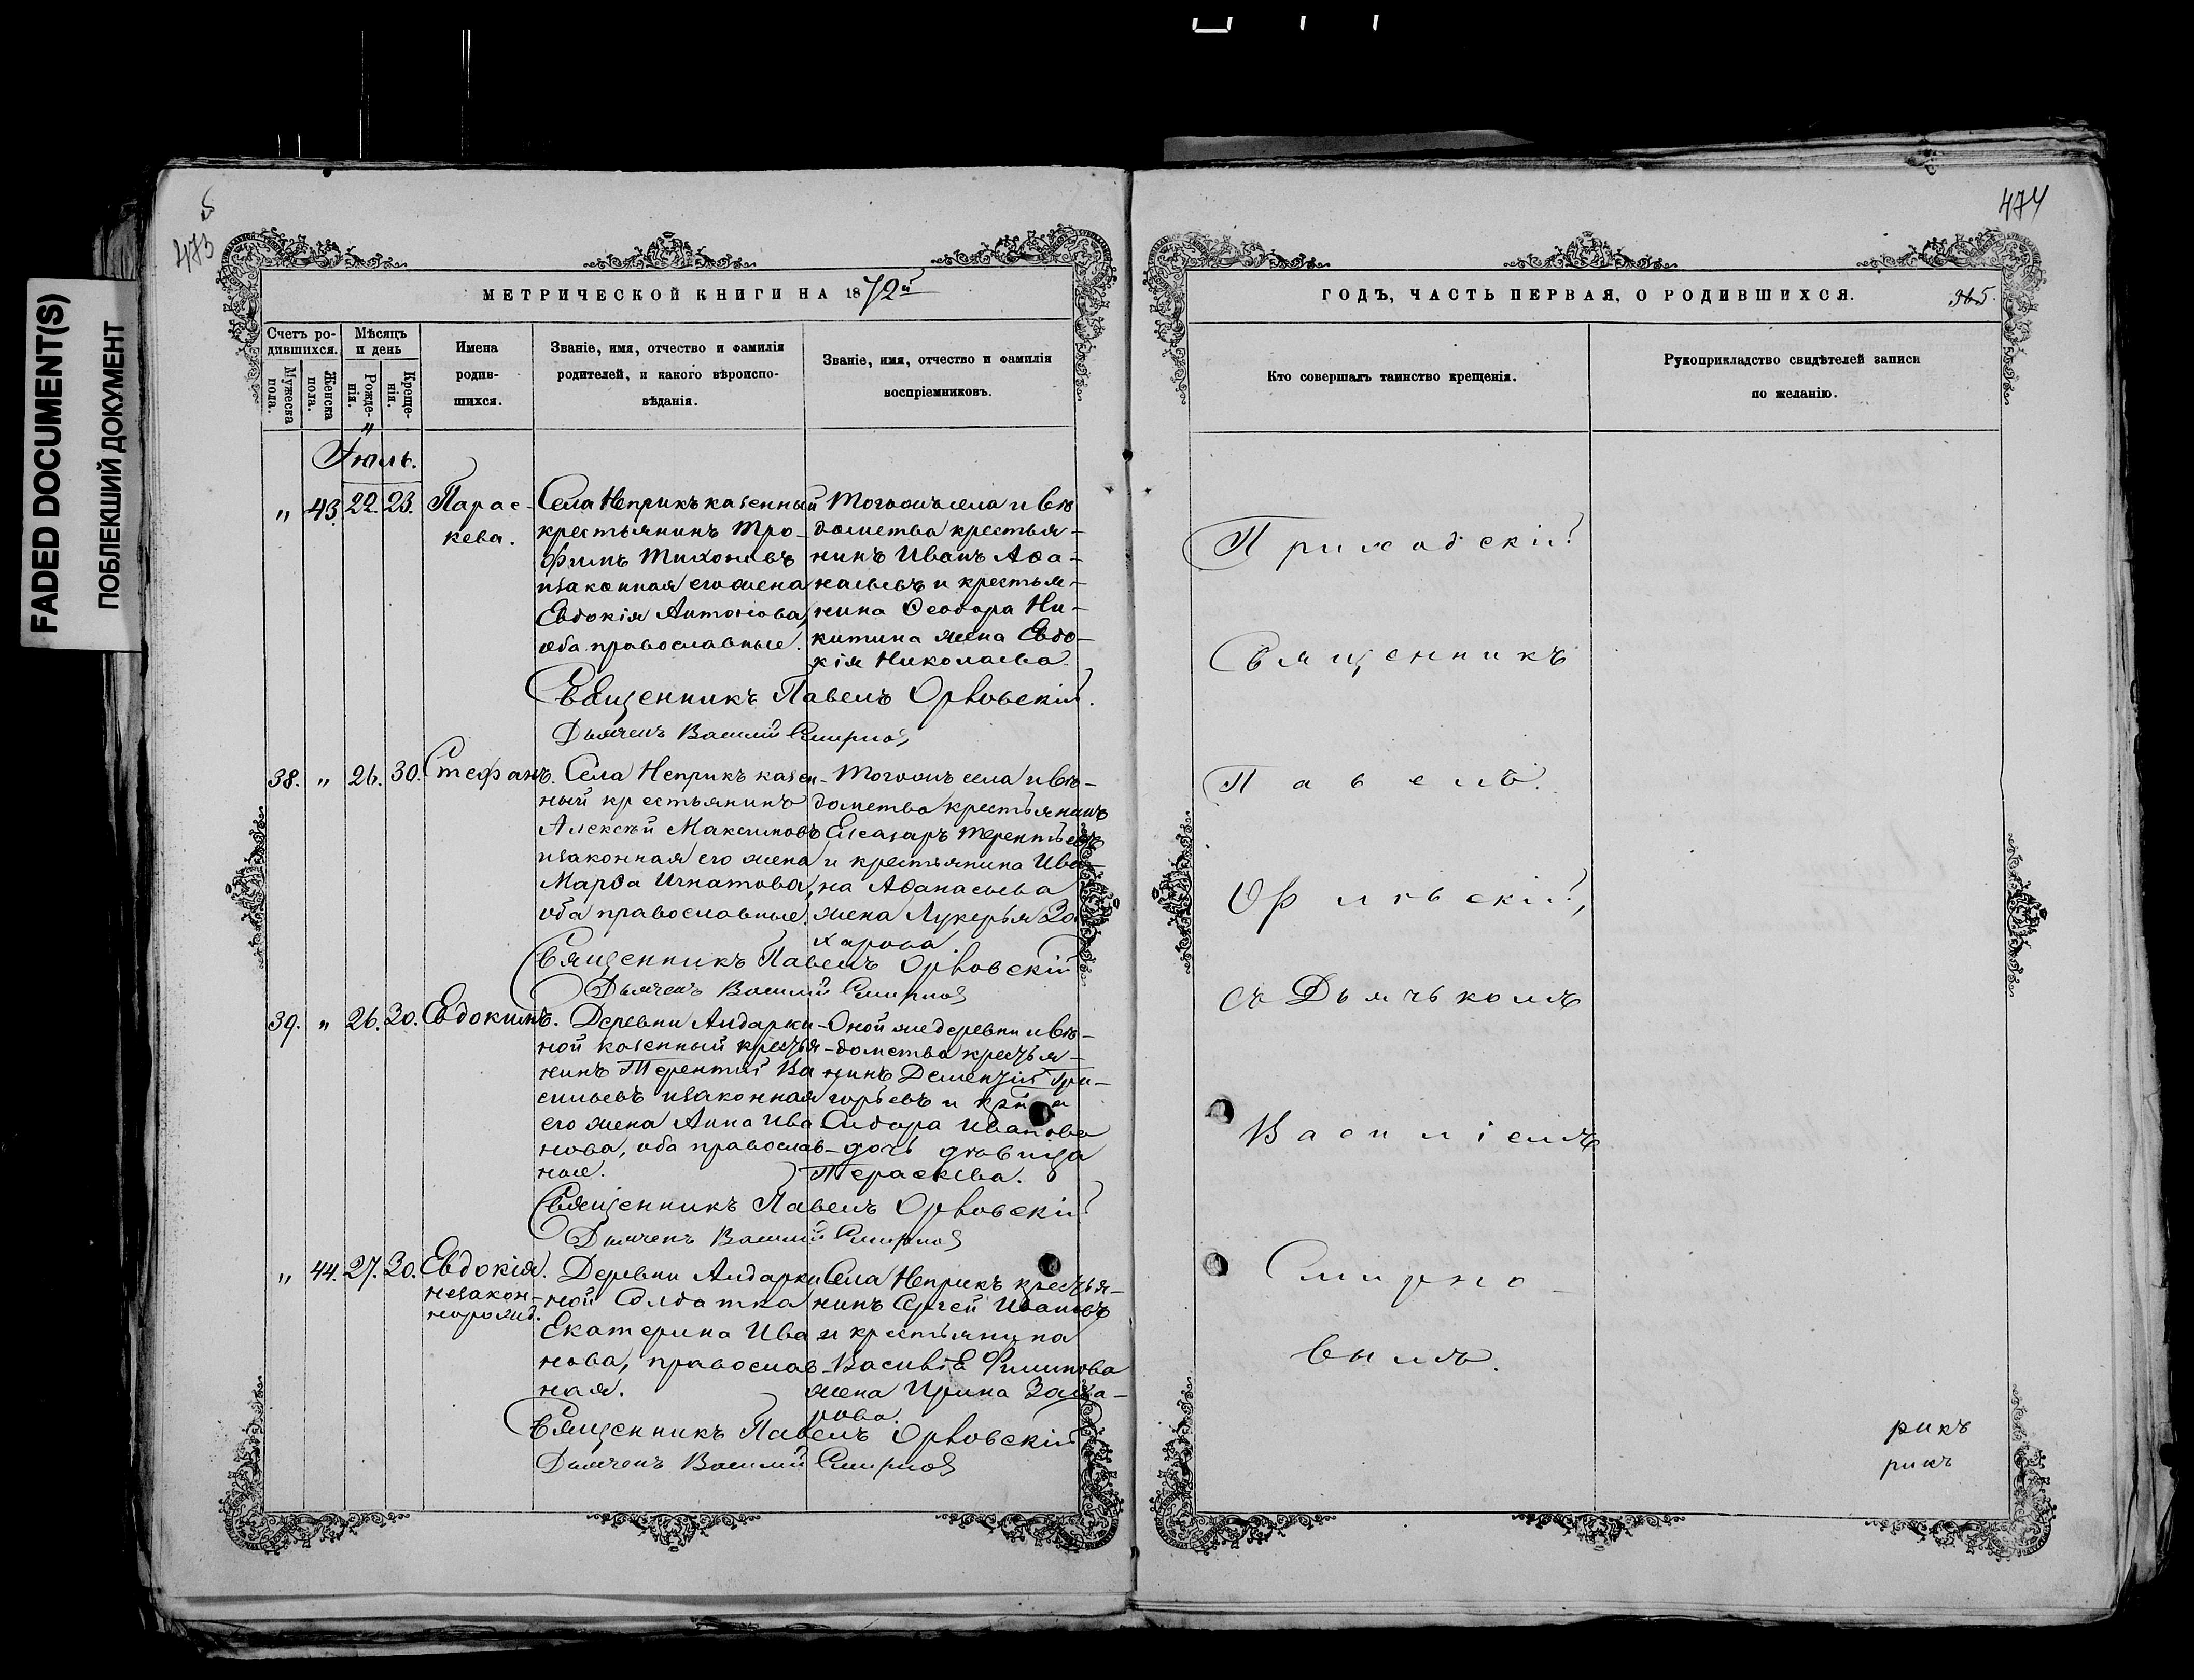 FADED DOCUMENT(S)
ПОБЛЕКШИЙ ДОКУМЕНТ
473
МЕТРИЧЕСКОЙ КНИГИ НА 1872й
Счетъ ро-
дившихся.
Мужеска
пола.
Женска
пола.
Мѣсяцъ
и день
Рожде-
нія.
Креще-
нія.
Имена
родив-
шихся.
Званіе, имя, отчество и фамилія
родителей, и какого вѣроиспо-
вѣданія.
Званіе, имя, отчество и фамилія
воспріемниковъ.
Іюль.
" 43. 22. 23.
Парас-
кева.
Села Неприкъ казенный
крестьянинъ Тро-
фимъ Тихоновъ
изаконная его жена
Евдокія Антонова,
оба православные.
Тогожъ села и вѣ
домства крестья-
нинъ Иванъ Аѳа-
насьевъ и крестья-
нина Ѳеодора Ни-
китина жена Евдо-
кія Николаева.
Священникъ Павелъ Орловскій.
Дьячекъ Василій Смирнов
38. " 26. 30. Стефанъ.
Села Неприкъ казен-
ный крестьянинъ
Алексѣй Максимовъ
изаконная его жена
Марѳа Игнатова,
оба православные.
Тогожъ села и вѣ-
домства крестьянинъ
Елеазаръ Терентьевъ
и крестьянина Ива-
на Аѳанасьева
жена Лукерья За
харова.
Священникъ Павелъ Орловскій
Дьячекъ Василій Смирнов
39. " 26. 30. Евдокимъ.
Деревни Андарки-
ной казенный кресья-
нинъ Терентій Ва
сильевъ изаконная
его жена Анна Ива
нова, оба православ-
ные.
Оной же деревни и вѣ-
домства кресья-
нинъ Дементій Гри-
горьевъ и
Сидора Иванова
дочь дѣвица
Параскева.
Священникъ Павелъ Орловскій
Дьячекъ Василій Смирнов
" 44. 27. 30. Евдокія.
незакон-
норожд.
Деревни Андарки
ной Солдатка
Екатерина Ива
нова, православ-
ная.
Села Неприкъ кресья-
нинъ Сергей Ивановъ
и крестьянина
Василія Филипова
жена Ирина Заха-
рова.
Священникъ Павелъ Орловскій
Дьячекъ Василій Смирнов
474
ГОДЪ, ЧАСТЬ ПЕРВАЯ, О РОДИВШИХСЯ.
Кто совершалъ таинство крещенія.
Рукоприкладство свидѣтелей записи
по желанію.
Приходскій
Священникъ
Павелъ
съ Дьячькомъ
Василіемъ
Смирно-
вымъ.
рикъ
рикъ